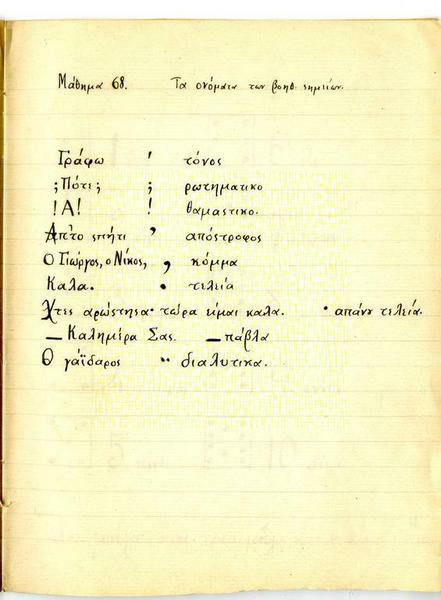 Μάθημα 68. Τα ονόματα των βοηθ. σημείων.
Γράφω ʹ τόνος
;Πότι; ; ρωτηματικο
!Α! ! θαμαστικο.
Απ'το σπήτι ’ απόστροφος
Ο Γιώργος, ο Νίκος, , κόμμα
Καλα. . τελεία
Χτες αρώστησα· τώρα είμαι καλα. · απάνω τελεία.
— Καλημέρα Σας. — πάβλα
Ο γάϊδαρος ¨ διαλυτικα.